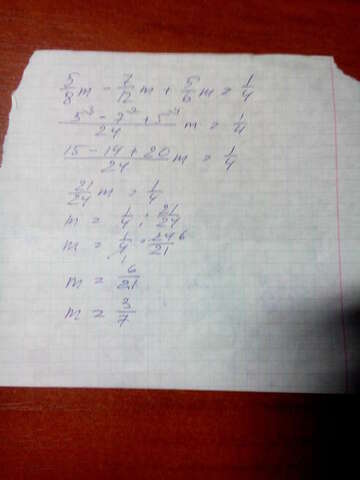 5/8 m - 7/12 m + 5/6 m = 1/4
5³ - 7² + 5⁴ / 24 m = 1/4
15 - 14 + 20 / 24 m = 1/4
21/24 m = 1/4
m = 1/4 : 21/24
m = 1/4 · 24⁶/21
m = 6/21
m = 3/7